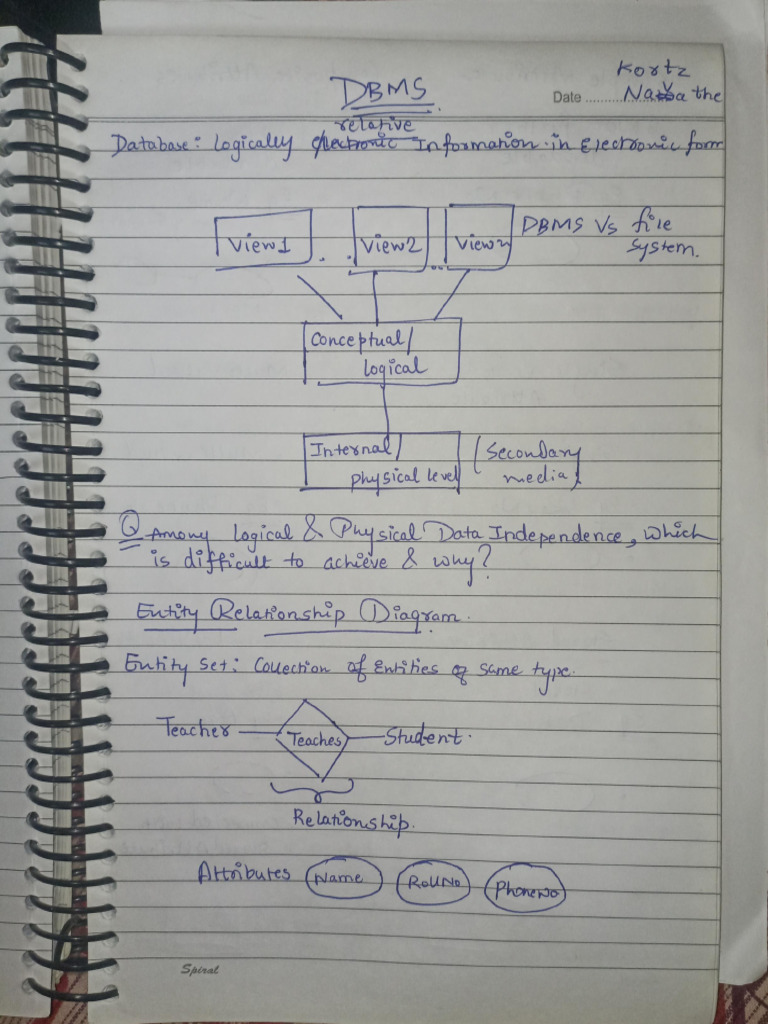 Kortz
DBMS
Date ............ Navathe
relative
Database: Logically electronic Information in Electronic form
View1 . . View2 .. View n
DBMS Vs file
system.
Conceptual/
logical
Internal/
physical level
(Secondary
media)
Q Among Logical & Physical Data Independence, which
is difficult to achieve & why?
Entity Relationship Diagram.
Entity Set: Collection of Entities of same type.
Teacher Teaches Student.
Relationship.
Attributes Name RollNo PhoneNo
Spiral